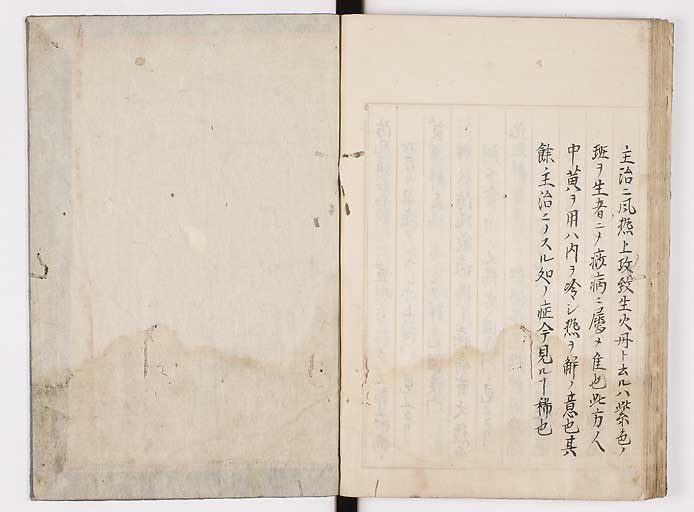 主治ニ風熱上攻発生火丹ト云ルハ紫色ノ
班ヲ生者ニメ疫病ニ属メ隹也此方人
中黄ヲ用ハ内ヲ冷シ熱ヲ解ノ意也其
餘主治ニノスル如ノ症今見ルヿ稀也